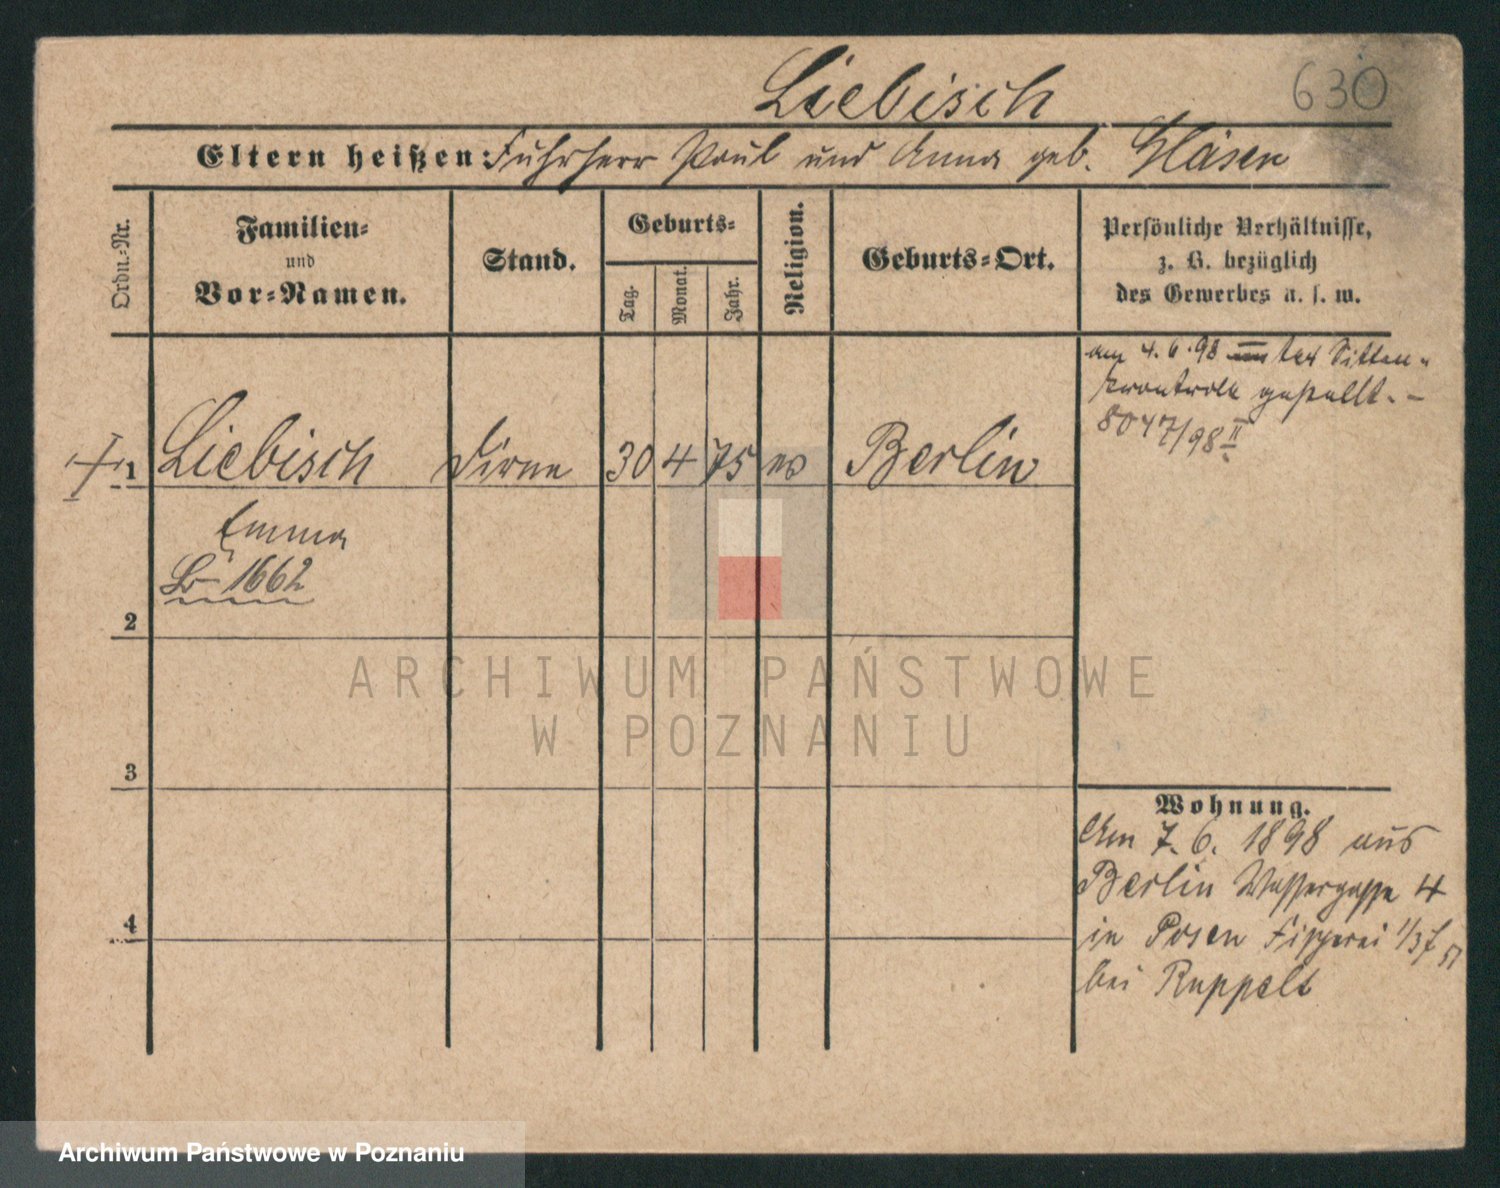 Liebisch 630
Eltern heißen: Fuhrherr Paul und Anna geb. Gläsen
Ordn.-Nr.
Familien-
und
Vor-Namen.
Stand.
Geburts-
Tag.
Monat.
Jahr.
Religion.
Geburts-Ort.
Persönliche Verhältnisse,
z. B. bezüglich
des Gewerbes u. s. w.
am 4.6.98 unter Sitten-
kontrole gestellt. -
8047/98 II
1 Liebisch Dirne 30 4 75 ev Berlin
Emma
L 1662
2
3
4
Wohnung.
Am 7. 6. 1898 aus
Berlin Wassergasse 4
in Posen Fischerei
bei Ruppelt
ARCHIWUM PAŃSTWOWE
W POZNANIU
Archiwum Państwowe w Poznaniu